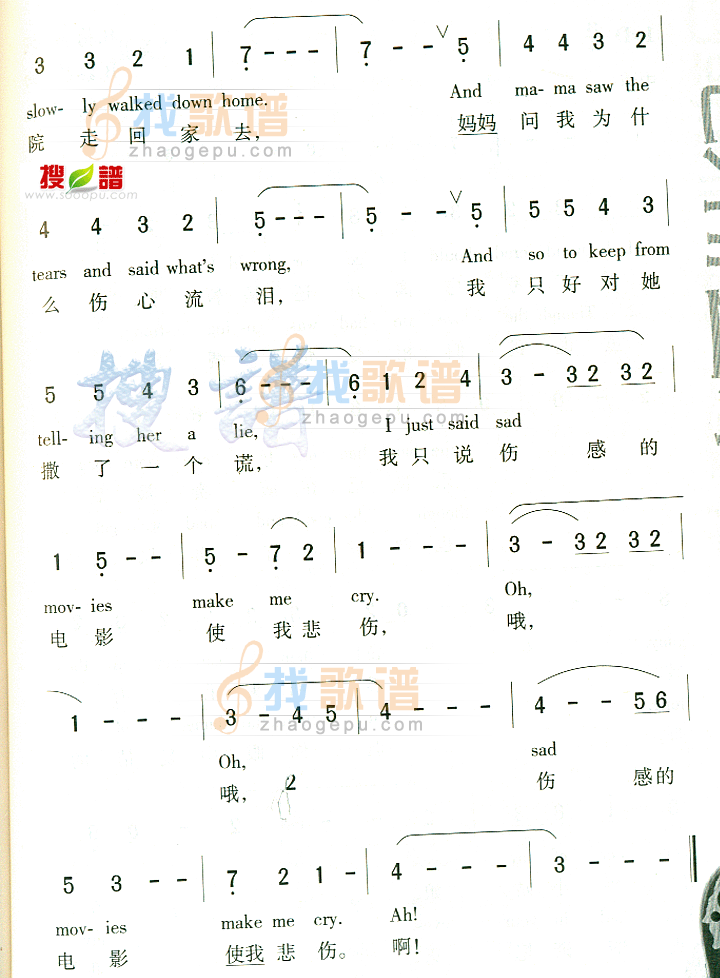 3 3 2 1 | 7 - - - | 7 - - ∨ 5 | 4 4 3 2 |
slow- ly walked down home. And ma- ma saw the
院 走 回 家 去, 妈妈 问 我 为 什
找歌谱
zhaogepu.com
搜谱
www.sooopu.com
4 4 3 2 | 5 - - - | 5 - - ∨ 5 | 5 5 4 3 |
tears and said what's wrong, And so to keep from
么 伤 心 流 泪, 我 只 好 对 她
搜谱
找歌谱
zhaogepu.com
5 5 4 3 | 6 - - - | 6 1 2 4 | 3 - 32 32 |
tell- ing her a lie, I just said sad
撒 了 一 个 谎, 我 只 说 伤 感 的
1 5 - - | 5 - 7 2 | 1 - - - | 3 - 32 32 |
mov- ies make me cry. Oh,
电 影 使 我 悲 伤, 哦,
找歌谱
zhaogepu.com
1 - - - | 3 - 4 5 | 4 - - - | 4 - - 56 |
Oh, sad
哦, 2 伤 感 的
5 3 - - | 7 2 1 - | 4 - - - | 3 - - - ‖
mov- ies make me cry. Ah!
电 影 使我 悲 伤。 啊!